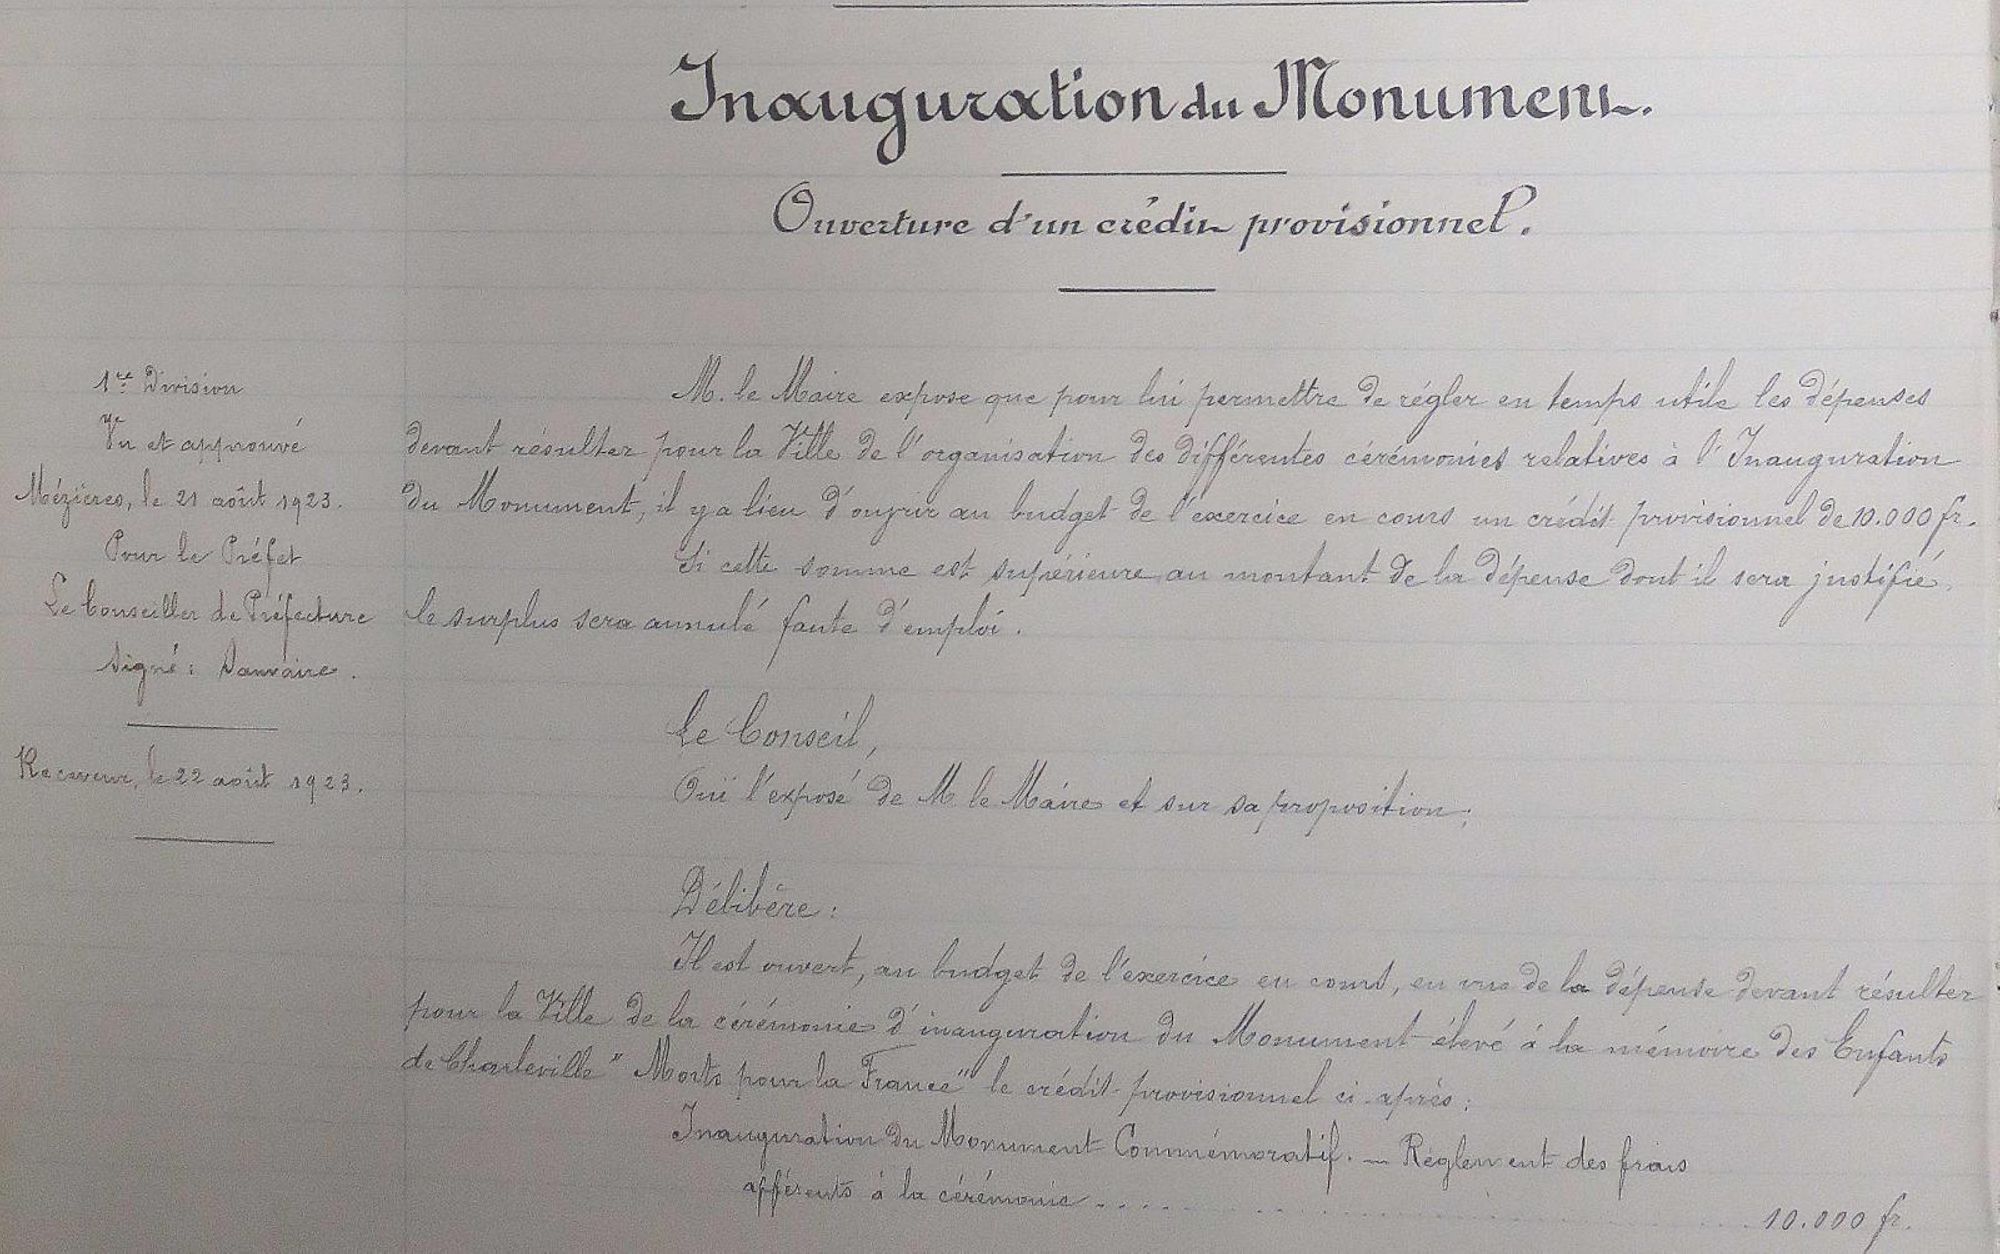 Inauguration du Monument.
Ouverture d'un crédit provisionnel.
1re Division
Vu et approuvé
Mézières, le 21 août 1923.
Pour le Préfet
Le Conseiller de Préfecture
Signé :
Receveur, le 22 août 1923.
M. le Maire expose que pour lui permettre de régler en temps utile les dépenses
devant résulter pour la Ville de l'organisation des différentes cérémonies relatives à l'Inauguration
du Monument, il y a lieu d'ouvrir au budget de l'exercice en cours un crédit provisionnel de 10.000 fr.
Si cette somme est supérieure au montant de la dépense dont il sera justifié,
le surplus sera annulé faute d'emploi.
Le Conseil,
Ouï l'exposé de M. le Maire et sur sa proposition ;
Délibère :
Il est ouvert, au budget de l'exercice en cours, en vue de la dépense devant résulter
pour la Ville de la cérémonie d'inauguration du Monument élevé à la mémoire des Enfants
de Charleville "Morts pour la France" le crédit provisionnel ci-après :
Inauguration du Monument Commémoratif. — Règlement des frais
afférents à la cérémonie . . . . 10.000 fr.